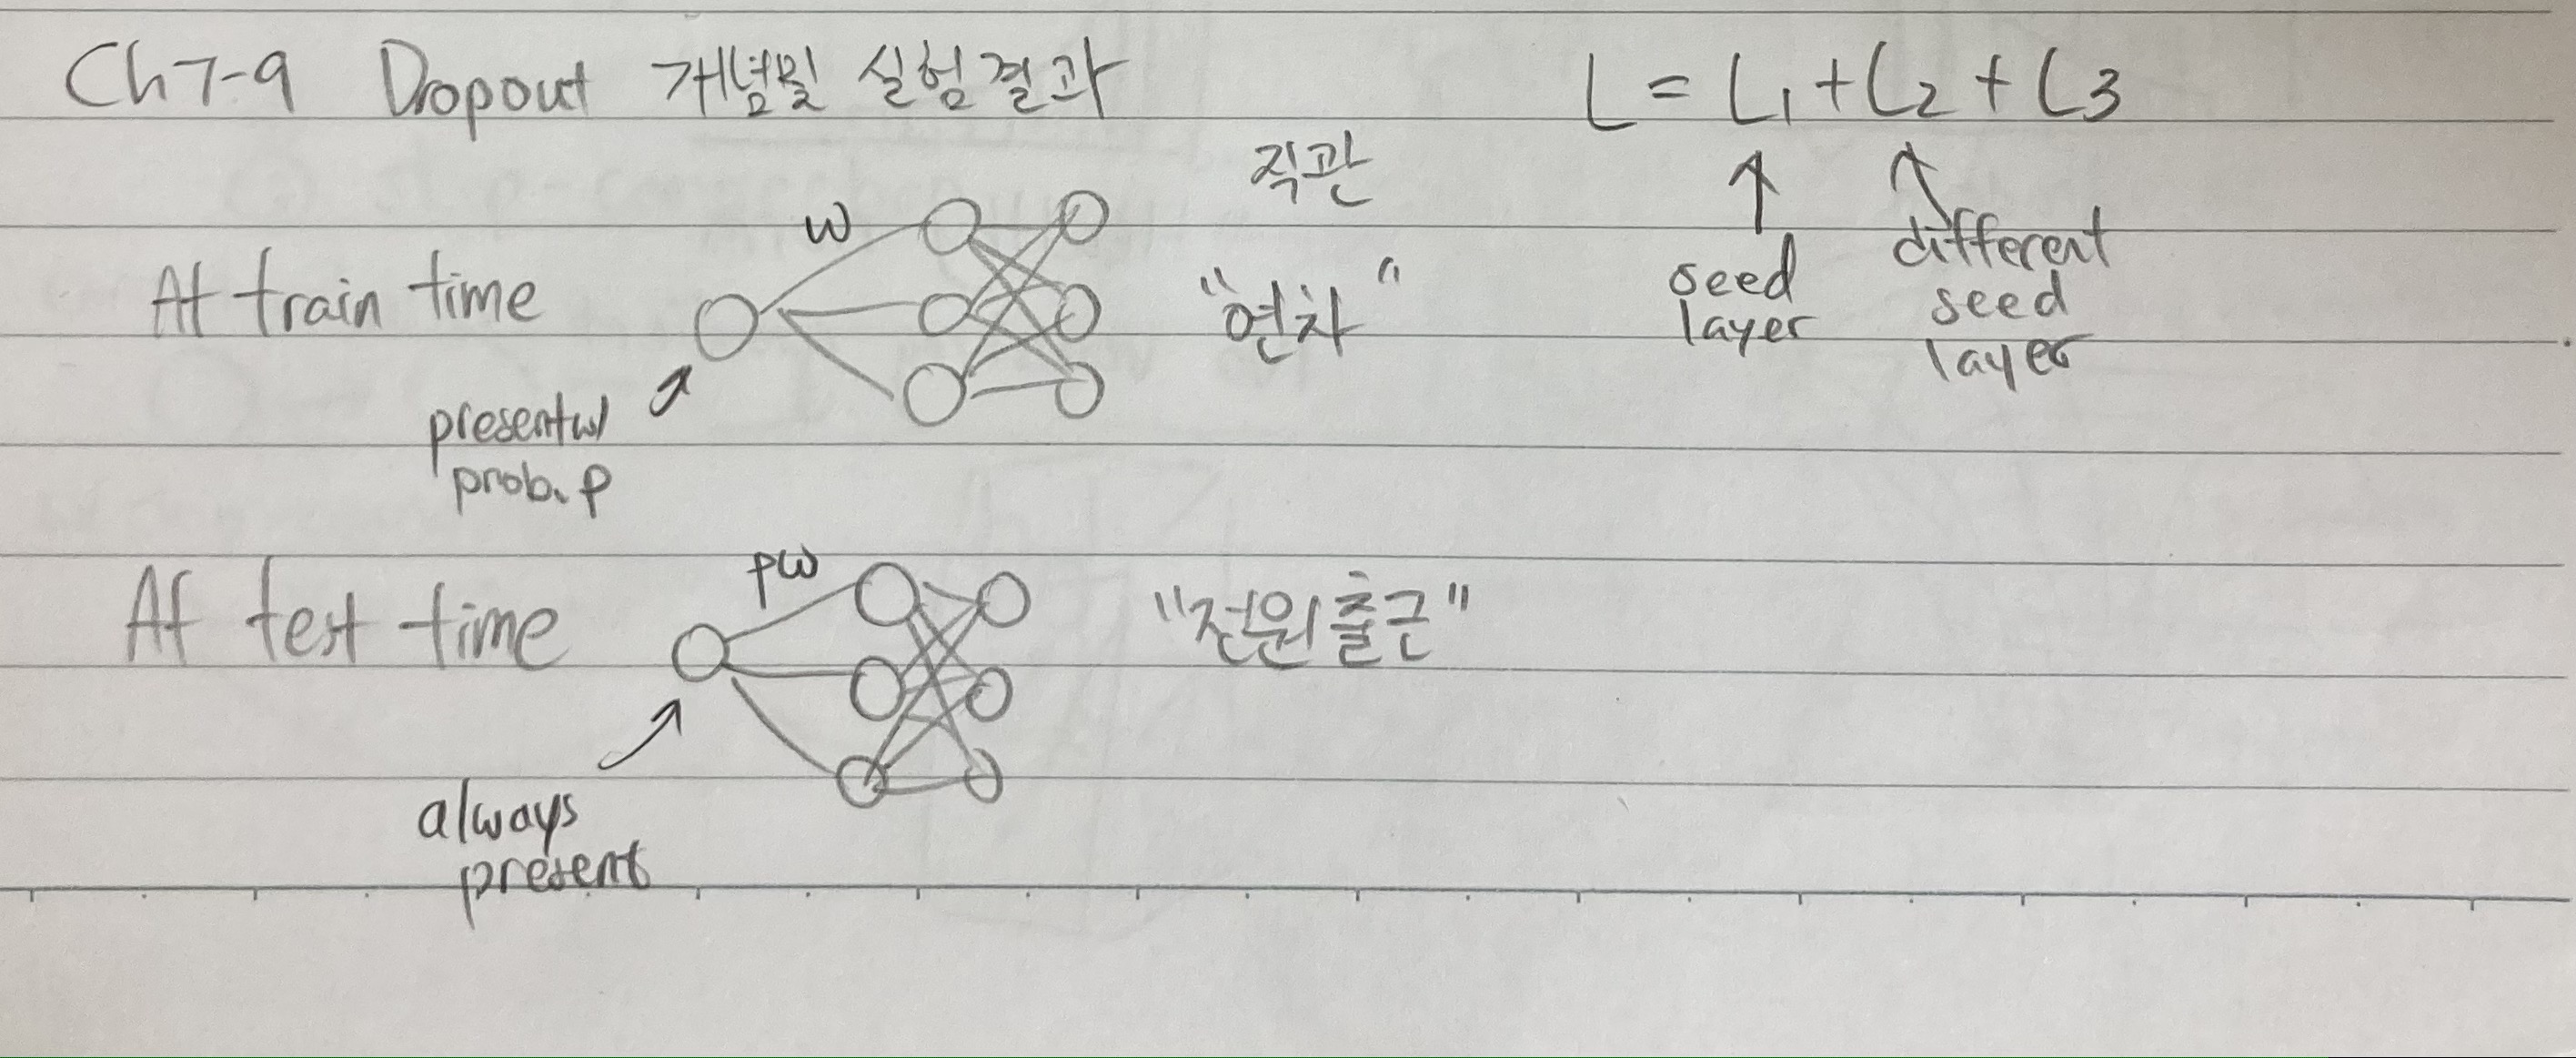 Ch7-9 Dropout 개념및 실험결과
L = L1 + L2 + L3
seed
layer
different
seed
layer
직관
At train time
w
"연차"
present w/
prob. p
At test time
pw
"전원출근"
always
present